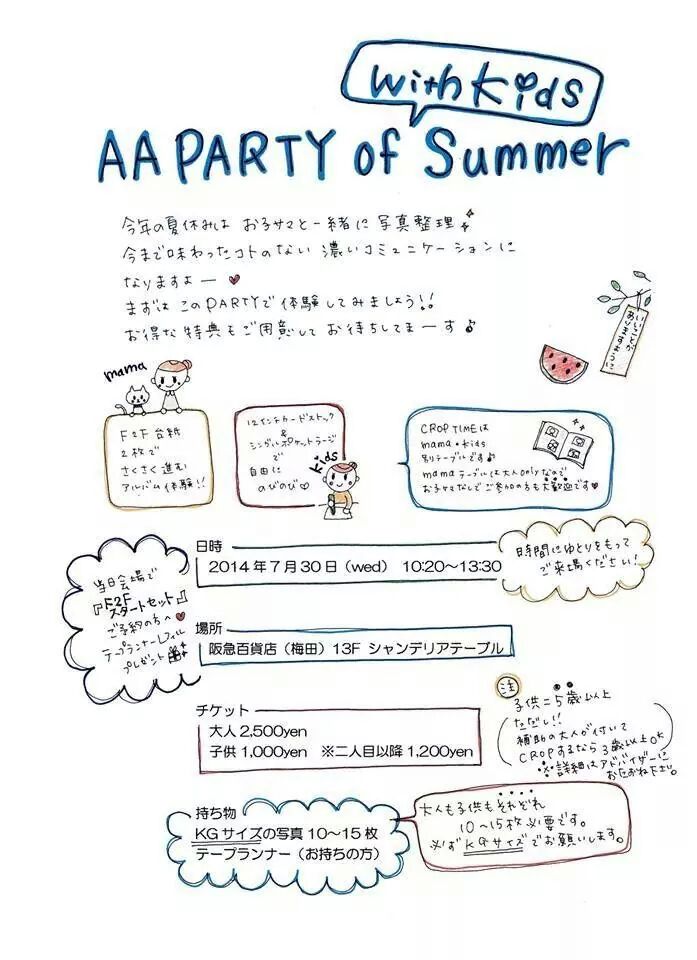 with kids
AA PARTY of Summer
今年の夏休みは お子サマと一緒に 写真整理♪
今まで味わったコトのない 濃いコミュニケーションに
なりますよー♥
まずは このPARTYで 体験してみましょう!!
お得な特典もご用意して お待ちしてまーす♪
いいことが
ありますように
mama
F2F台紙
2枚で
さくさく進む
アルバム体験!!
12インチカードストック
&
シングルポケットラージ
で
自由に
のびのび♡
kids
CROP TIMEは
mama・kids
別テーブルです♪
mamaテーブルは大人onlyなので
お子サマなしでご参加の方も大歓迎です♥
当日会場で
『F2F
スタートセット』
ご予約の方へ♥
テープランナーレフィル
プレゼント
日時
2014年7月30日(wed) 10:20~13:30
時間にゆとりをもって
ご来場ください!
場所
阪急百貨店(梅田)13F シャンデリアテーブル
チケット
大人 2,500yen
子供 1,000yen ※二人目以降 1,200yen
注
子供=5歳以上
ただし!!
補助の大人が付いて
CROPするなら3歳以上OK
※詳細はアドバイザーに
お尋ね下さい。
持ち物
KGサイズの写真10~15枚
テープランナー(お持ちの方)
大人も子供もそれぞれ
10~15枚必要です。
必ずKGサイズでお願いします。